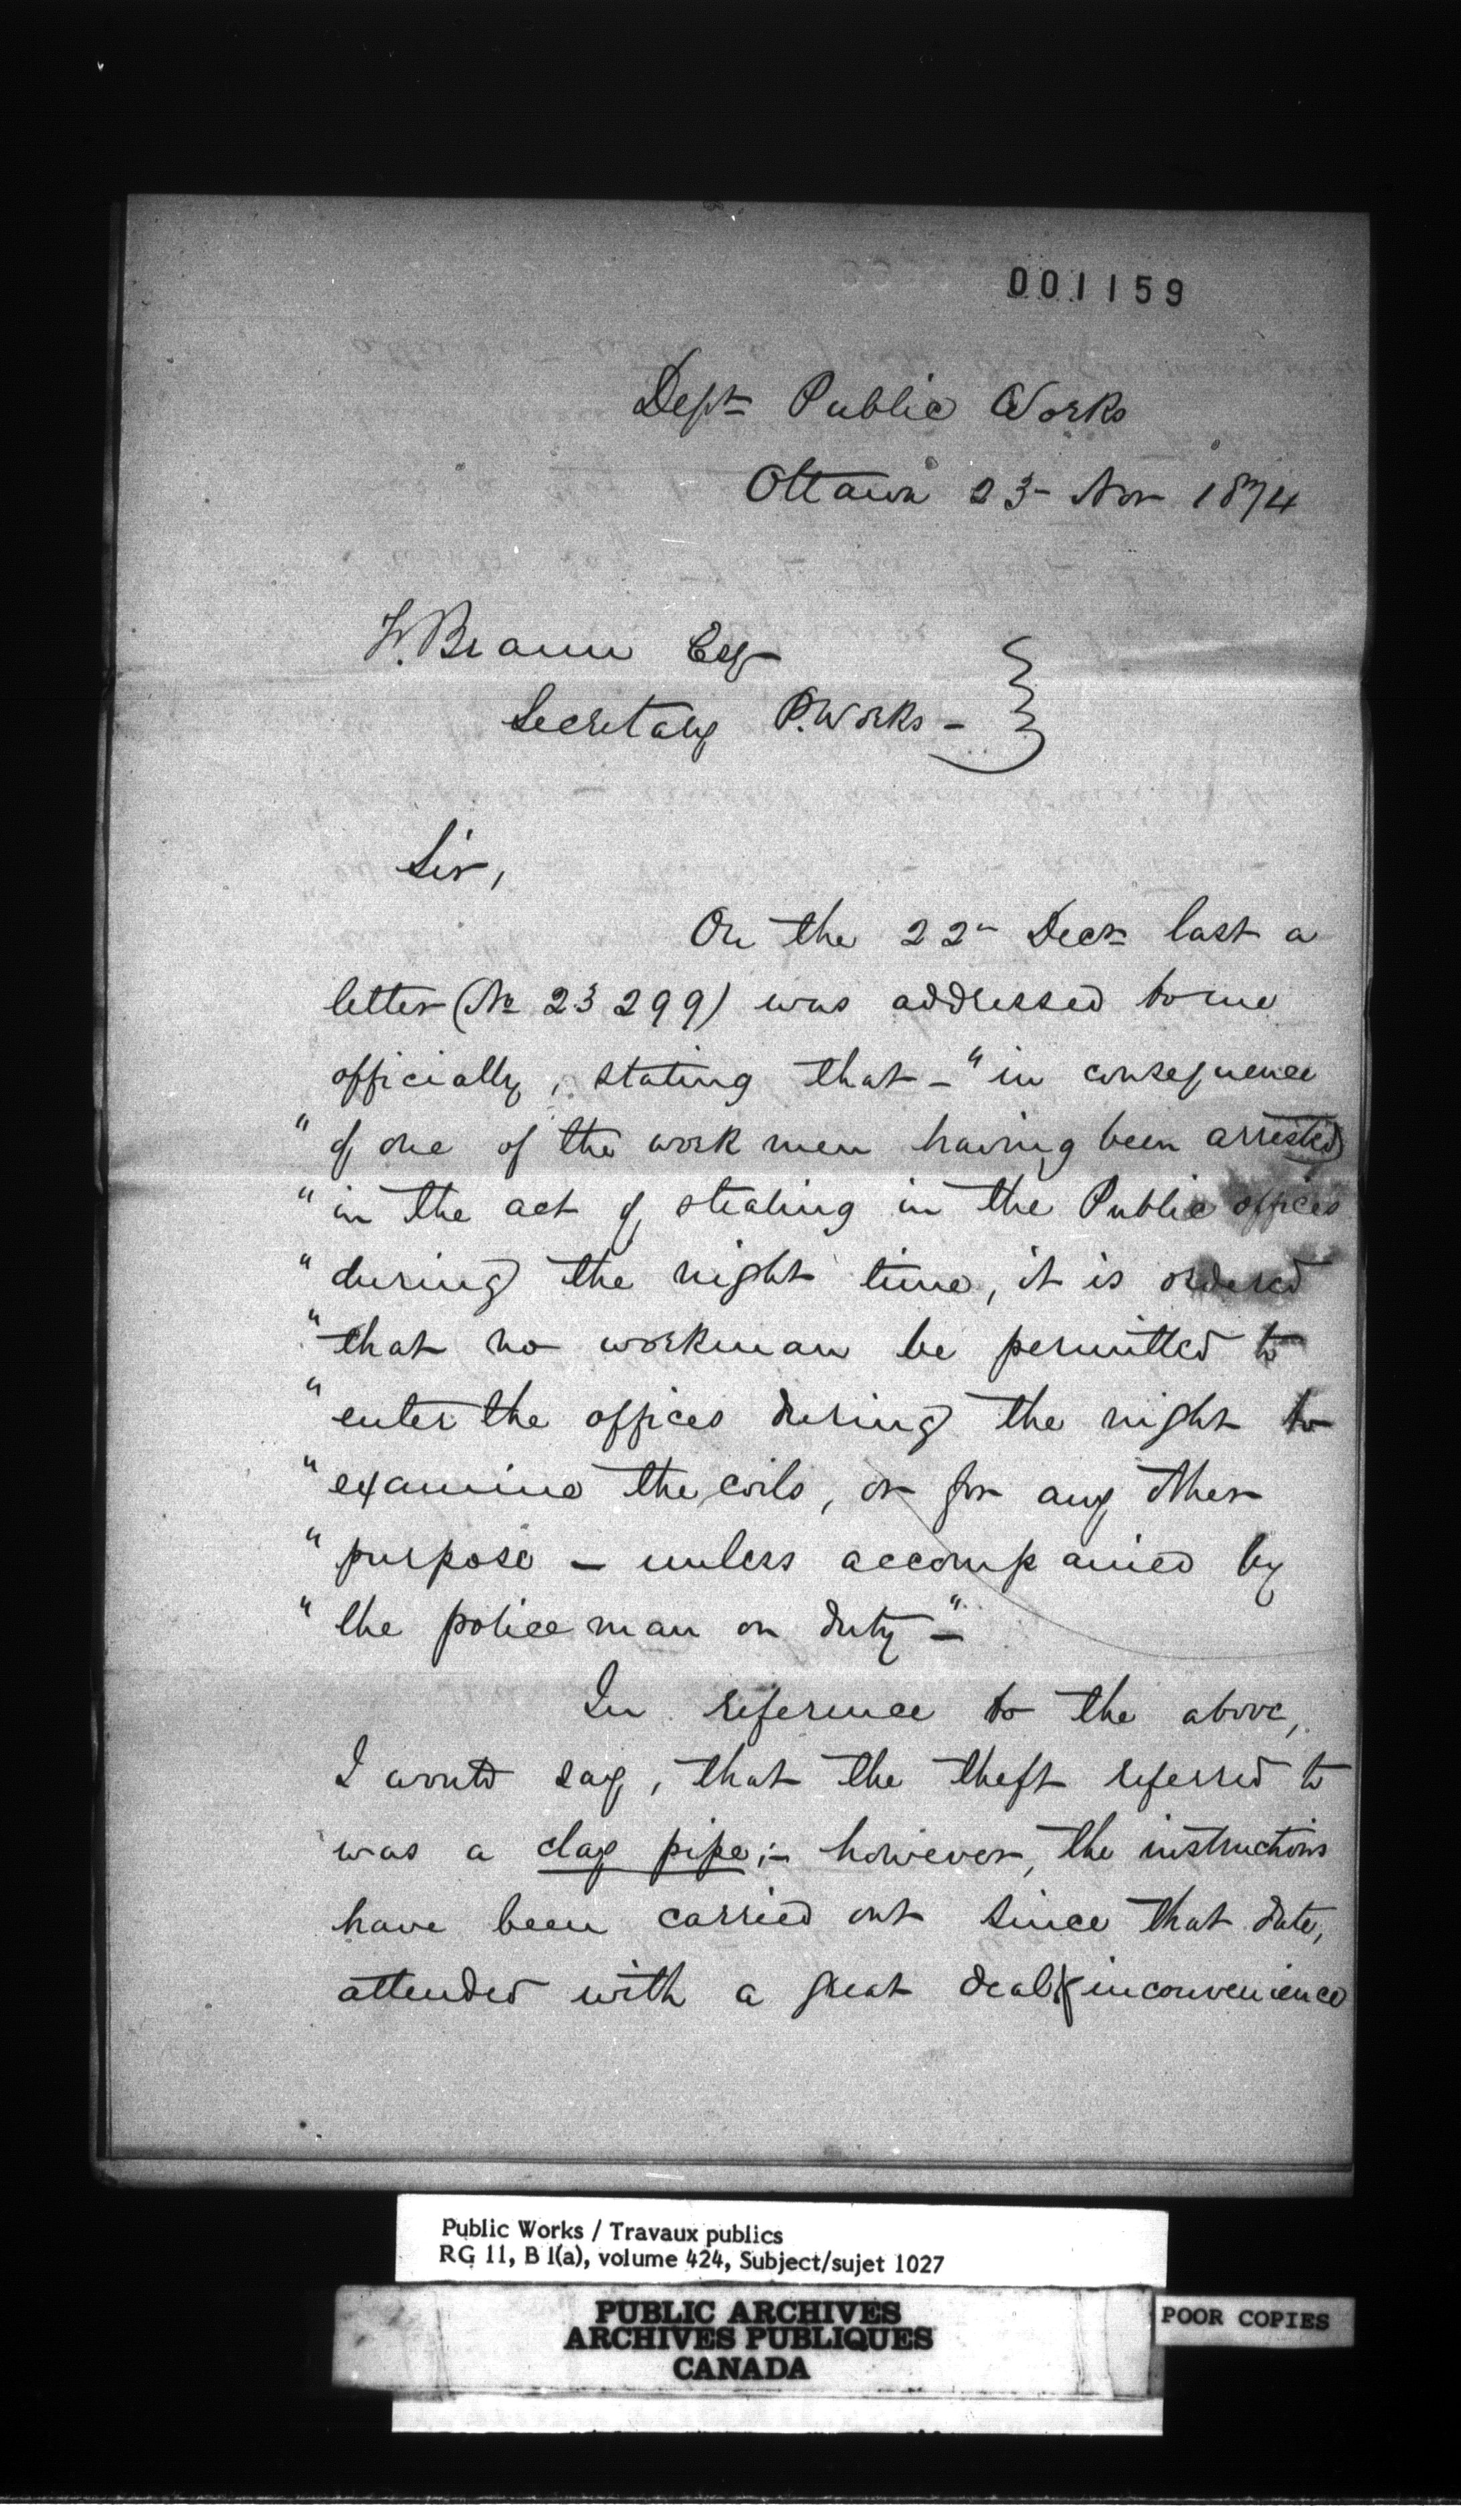 001159
Dept Public Works
Ottawa 23 - Nov 1874
F. Braun Esq
Secretary P. Works -
Sir,
On the 22n Decr last a
letter (No 23299) was addressed to me
officially, stating that - "in consequence
" of one of the work men having been arrested
" in the act of stealing in the Public offices
" during the night time, it is ordered
" that no workman be permitted to
" enter the offices during the night to
" examine the coils, or for any other
" purpose - unless accompanied by
" the police man on duty -"
In reference to the above,
I would say, that the theft referred to
was a clay pipe; - however, the instructions
have been carried out since that date,
attended with a great deal of inconvenience
Public Works / Travaux publics
RG 11, B 1(a), volume 424, Subject/sujet 1027
PUBLIC ARCHIVES
ARCHIVES PUBLIQUES
CANADA
POOR COPIES